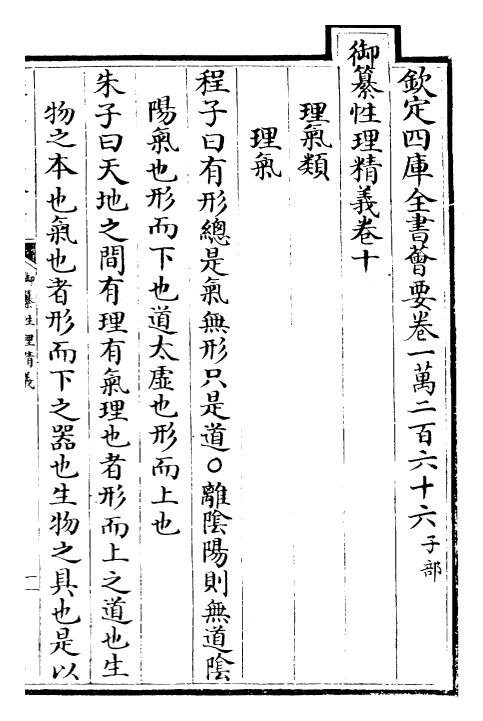 欽定四庫全書薈要卷一萬二百六十六子部
御纂性理精義卷十
理氣類
理氣
程子曰有形總是氣無形只是道○離陰陽則無道陰
陽氣也形而下也道太虛也形而上也
朱子曰天地之間有理有氣理也者形而上之道也生
物之本也氣也者形而下之器也生物之具也是以
御纂性理精義
一